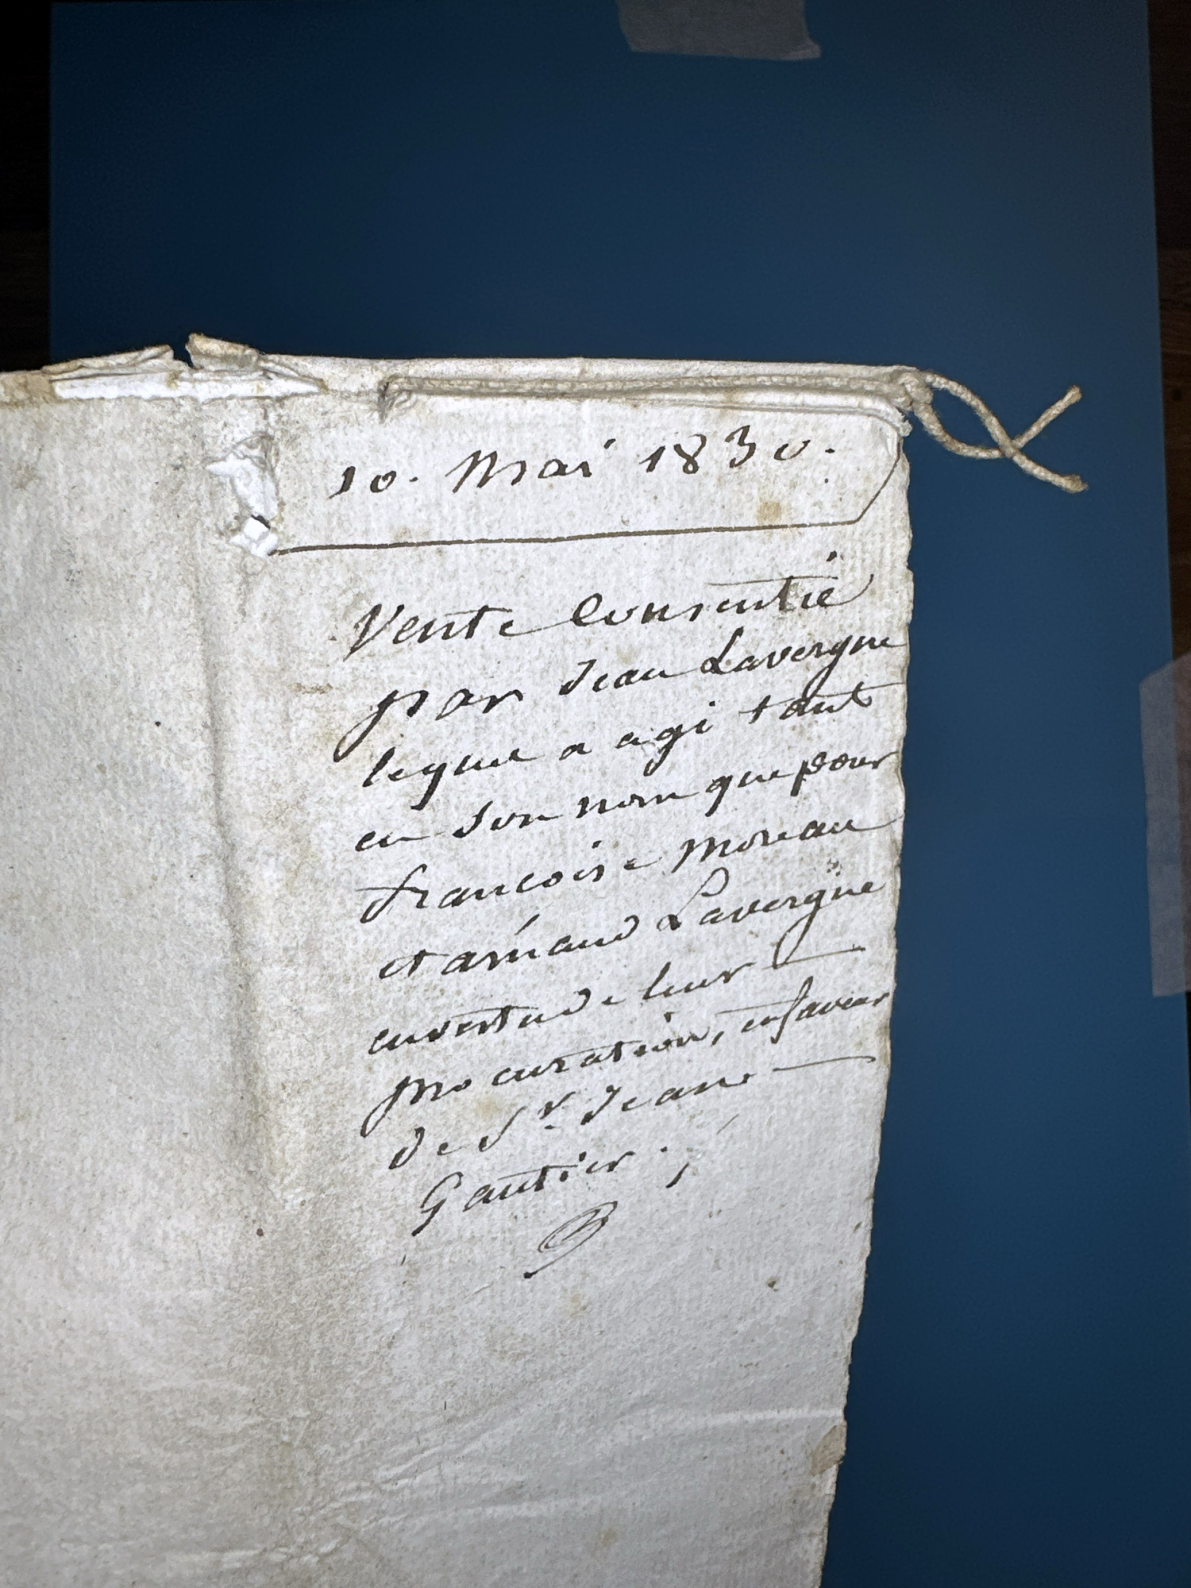 10. Mai 1830.
Vente Consentie
par Jean Lavergne
lequel a agi tant
en son nom que pour
francoise Moreau
et arnaud Lavergne
envertu de leur
procuration, enfaveur
de Sr. Jean
Gautier.